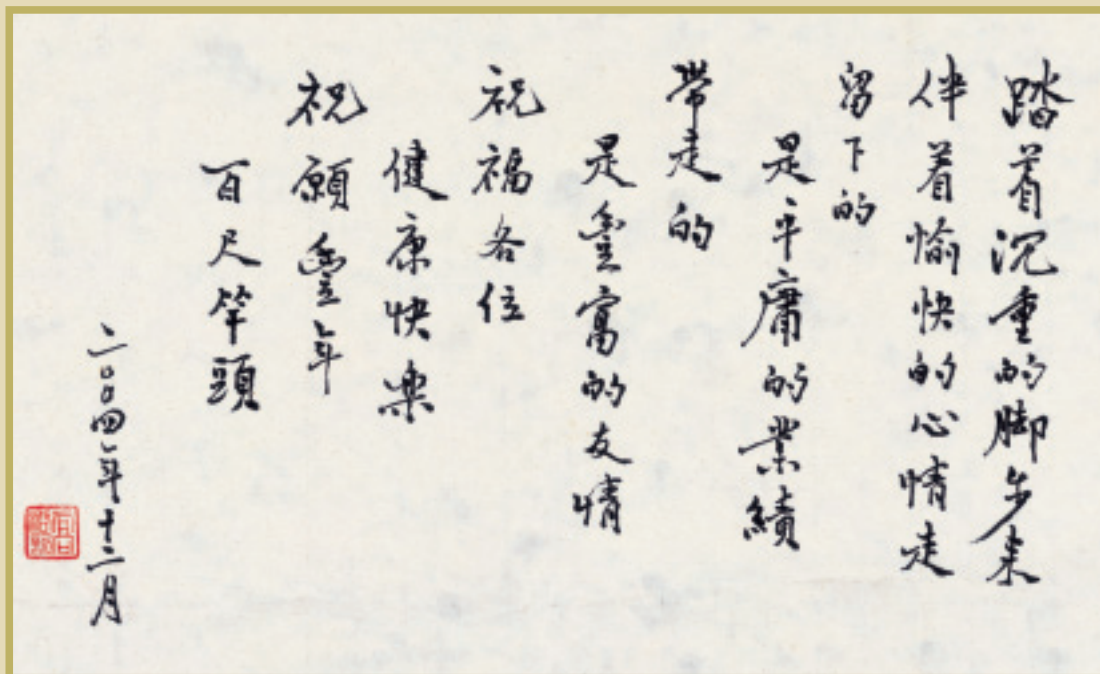 踏着沉重的脚步来
伴着愉快的心情走
留下的
是平庸的業績
帶走的
是豐富的友情
祝福各位
健康快樂
祝願豐年
百尺竿頭
二〇〇四年十二月